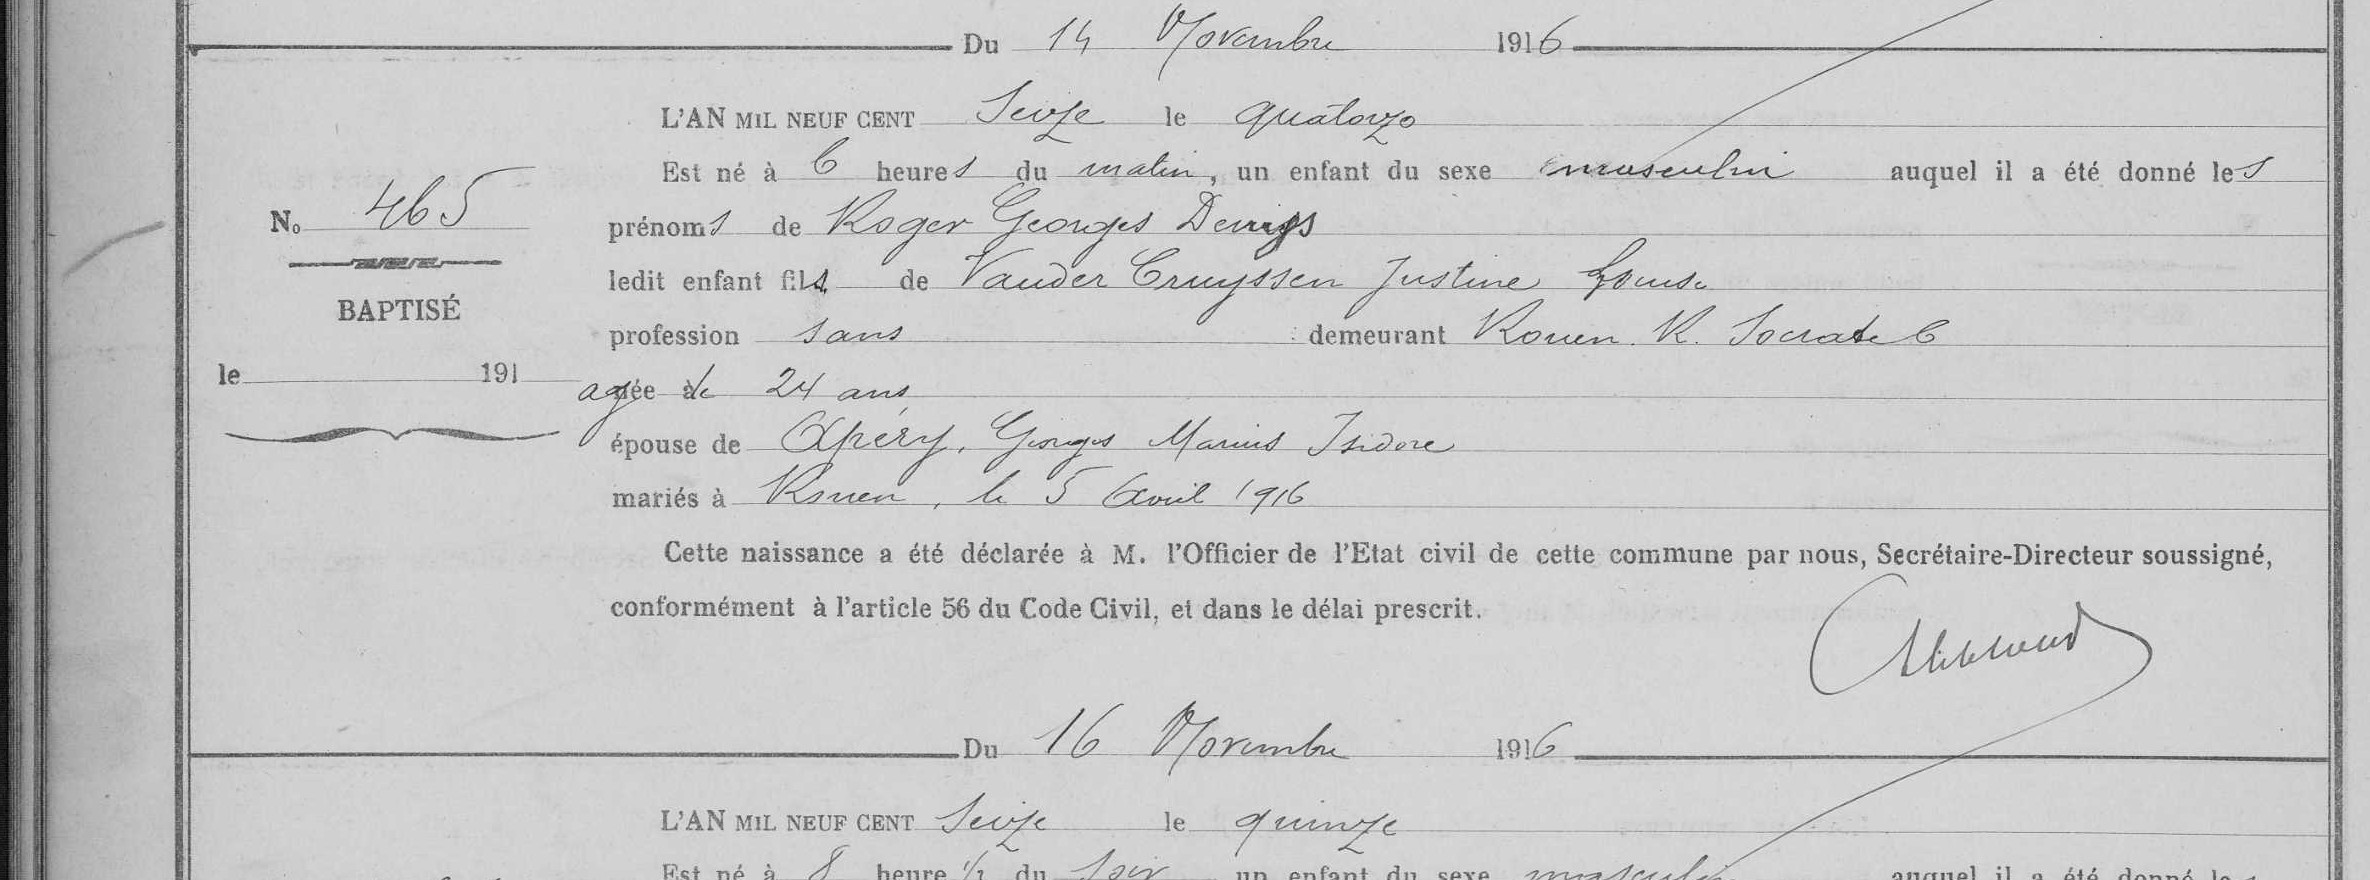 Du 14 Novembre 1916
L'AN MIL NEUF CENT Seize le quatorze
Est né à 6 heures du matin, un enfant du sexe masculin auquel il a été donné les
No 465
prénoms de Roger Georges Denys
ledit enfant fils de Vander Cruyssen Justine Louise
BAPTISÉ
profession sans demeurant Rouen. R. Socrate 6
le 191
agée de 24 ans
épouse de Apéry, Georges Marius Isidore
mariés à Rouen, le 5 Avril 1916
Cette naissance a été déclarée à M. l'Officier de l'Etat civil de cette commune par nous, Secrétaire-Directeur soussigné,
conformément à l'article 56 du Code Civil, et dans le délai prescrit.
Du 16 Novembre 1916
L'AN MIL NEUF CENT Seize le quinze
Est né à 8 heure ½ du soir un enfant du sexe masculin auquel il a été donné les